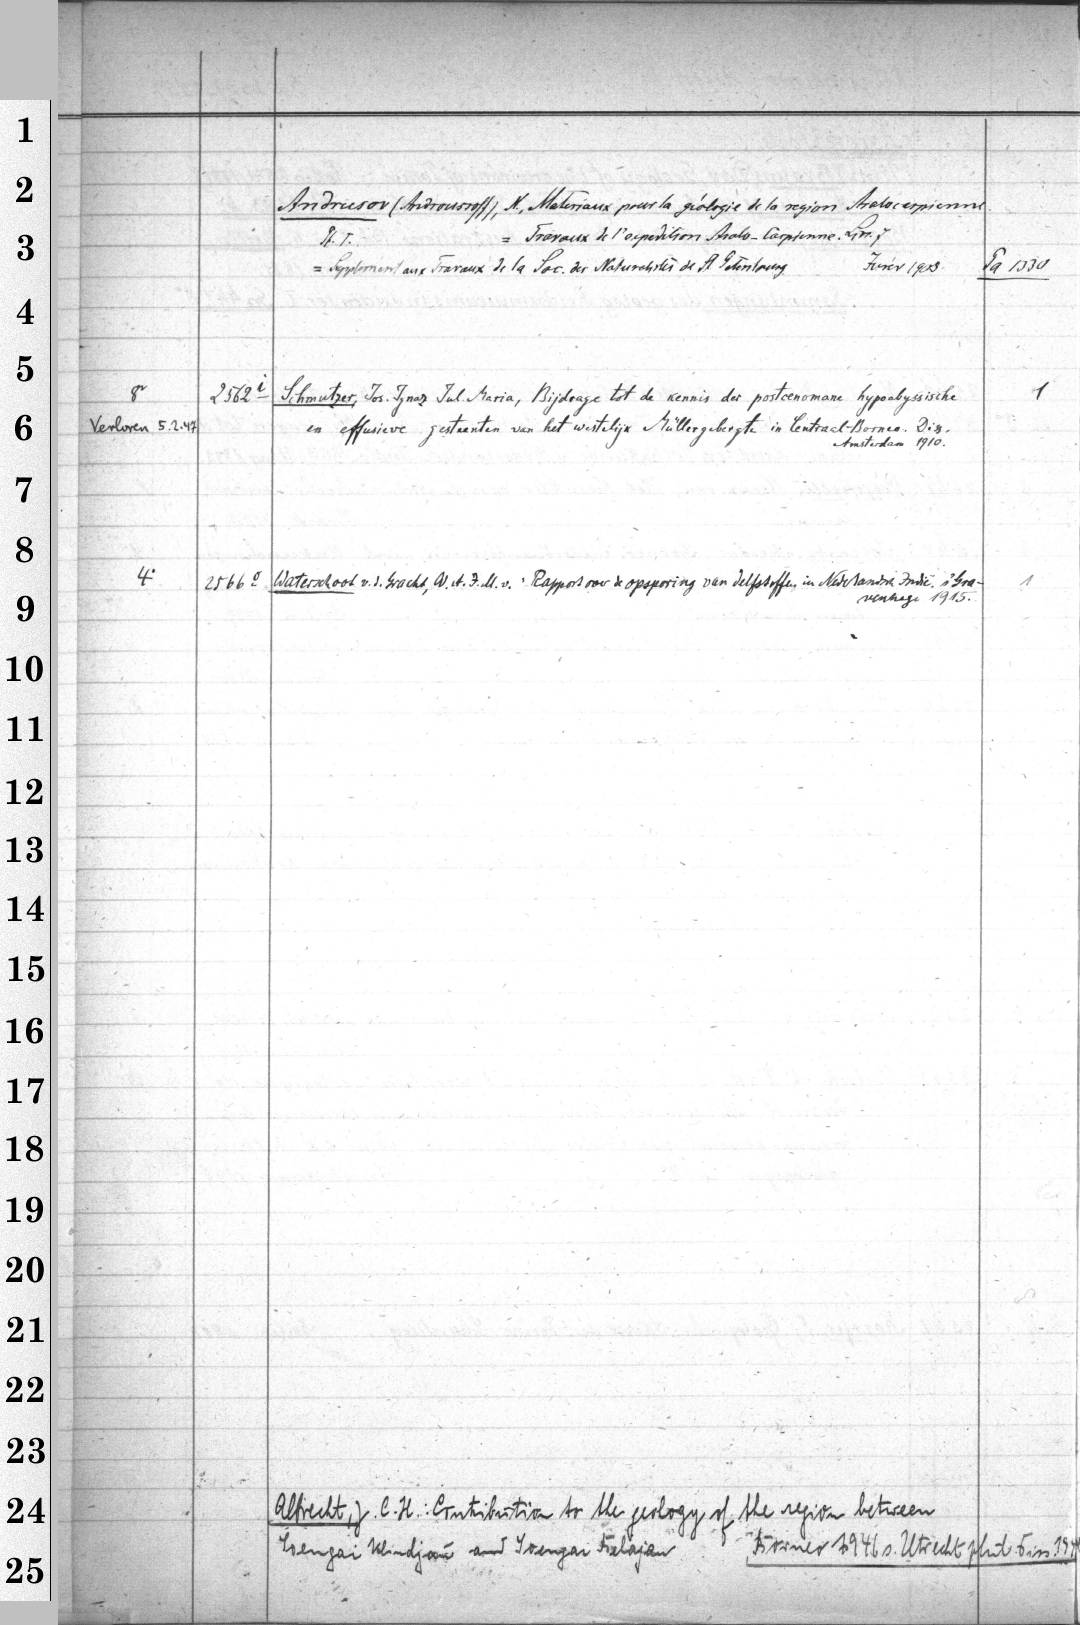 1
2
Andrusov (Androussoff), N, Materiaux pour la géologie de la region Aralocaspienne.
3
Pt. I. = Travaux de l'expedition Aralo-Caspienne. Livr. 7
= Supplement aux Travaux de la Soc. des Naturalistes de St Petersbourg Juriev 1905 Pa 1330
4
5
8º 2562 i Schmutzer, Jos. Ignaz Jul. Maria, Bijdrage tot de kennis der postcenomane hypoabyssische 1
6
Verloren 5.2.47 en effusieve gesteenten van het westelijk Müllergebergte in Centraal-Borneo. Diss.
Amsterdam 1910.
7
8
4º 2566 o Waterschoot v. d. Gracht, W. A. J. M. v. : Rapport over de opsporing van delfstoffen in Nederlandsch Indië. 's Gra- 1
9
venhage 1915.
10
11
12
13
14
15
16
17
18
19
20
21
22
23
24
Albrecht, J. C. H.: Contribution to the geology of the region between
Soengai Klindjau and Soengai Belajan Borneo 1946 s. Utrecht
25